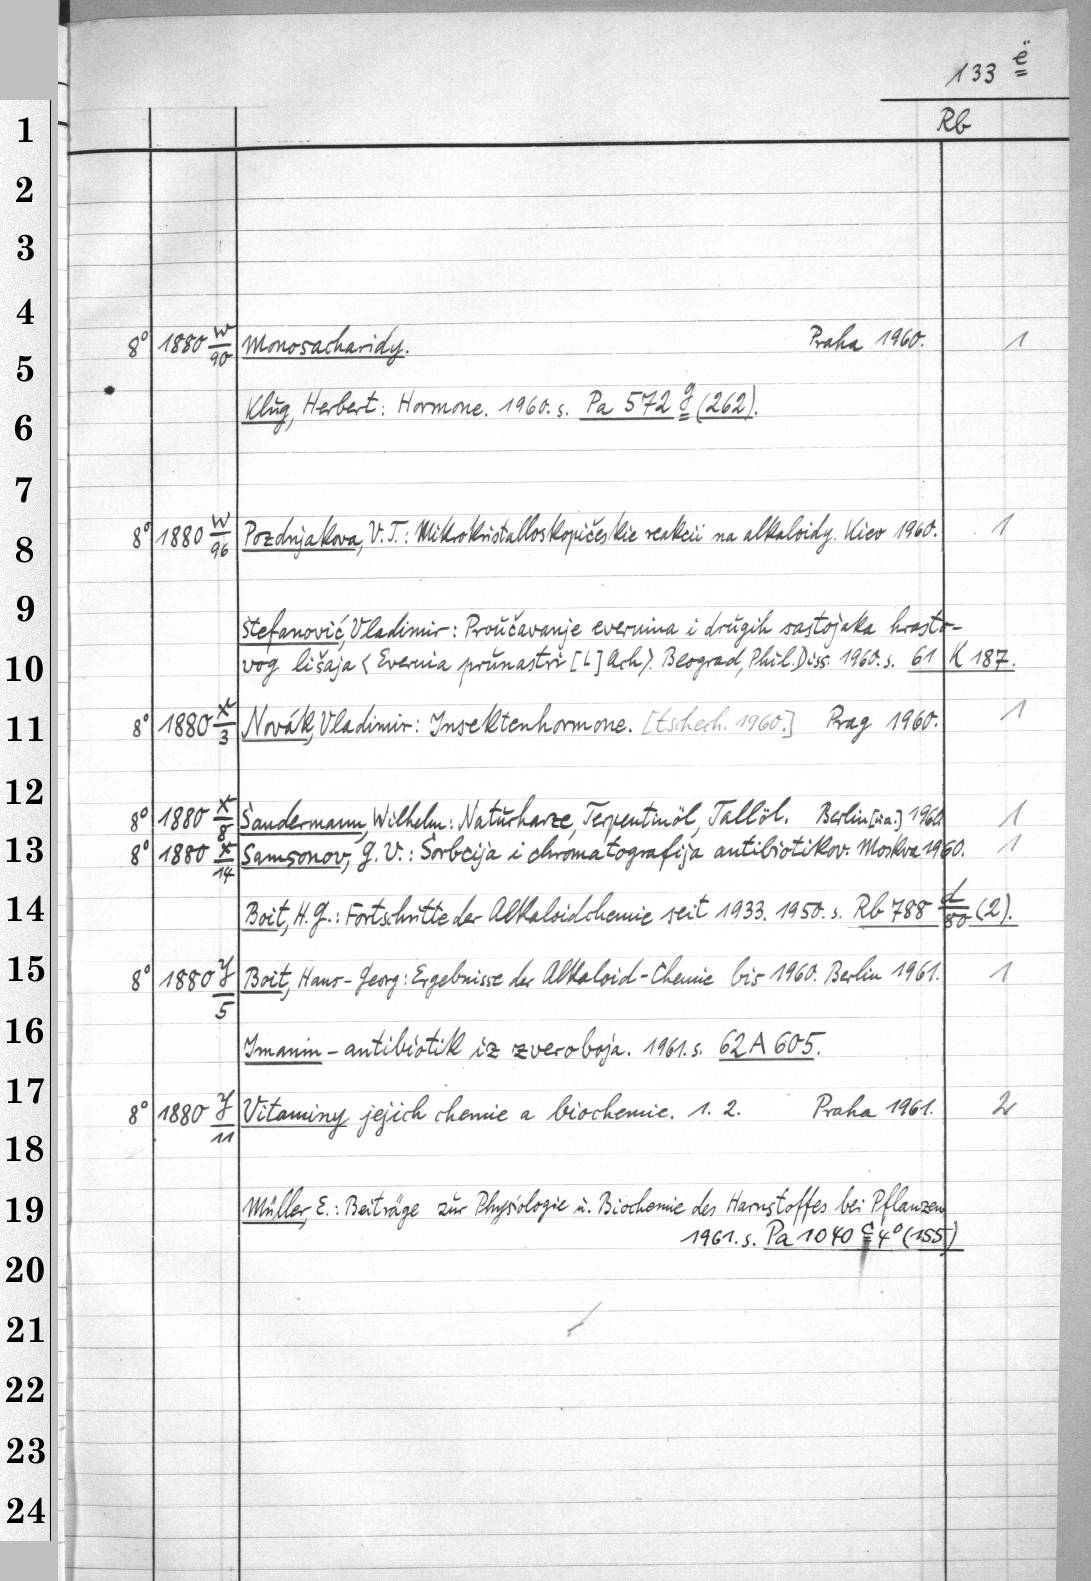 133 ë
Rb
1
2
3
4
8° 1880 w/90 Monosacharidy. Praha 1960. 1
5
Klug, Herbert: Hormone. 1960. s. Pa 572 g (262).
6
7
8° 1880 w/96 Pozdnjakova, V. T.: Mikrokristalloskopičeskie reakcii na alkaloidy. Kiev 1960. 1
8
9
Stefanović, Vladimir: Proučavanje evernina i drugih sastojaka hrasto-
10
vog lišaja <Evernia prunastri [L] Ach>. Beograd, Phil. Diss. 1960. s. 61 K 187.
11
8° 1880 x/3 Novák, Vladimir: Insektenhormone. [tschech. 1960.] Prag 1960. 1
12
8° 1880 x/8 Sandermann, Wilhelm: Naturharze, Terpentinöl, Tallöl. Berlin [u.a.] 1960. 1
13
8° 1880 x/14 Samsonov, G. V.: Sorbcija i chromatografija antibiotikov. Moskva 1960. 1
14
Boit, H. G.: Fortschritte der Alkaloidchemie seit 1933. 1950. s. Rb 788 d/80 (2).
15
8° 1880 y/5 Boit, Hans-Georg: Ergebnisse der Alkaloid-Chemie bis 1960. Berlin 1961. 1
16
Imanin - antibiotik iz zveroboja. 1961. s. 62 A 605.
17
8° 1880 y/11 Vitaminy jejich chemie a biochemie. 1. 2. Praha 1961. 2
18
19
Müller, E.: Beiträge zur Physiologie u. Biochemie des Harnstoffes bei Pflanzen
1961. s. Pa 1040 c 4° (155)
20
21
22
23
24